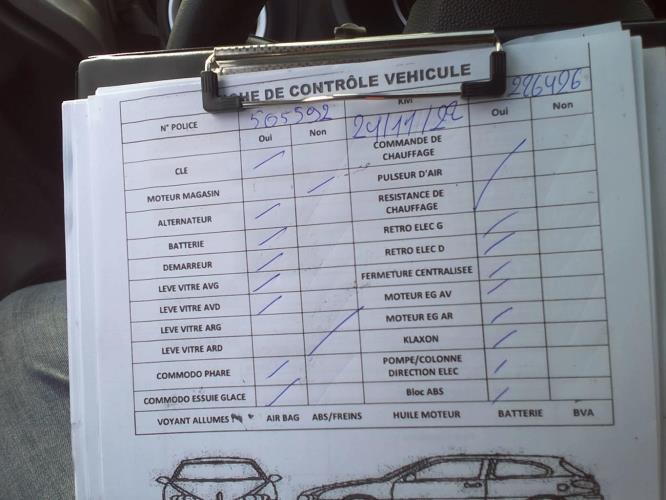 CHE DE CONTRÔLE VEHICULE
N° POLICE 565592 KM 226426
Oui Non 24/11/22 Oui Non
CLE COMMANDE DE CHAUFFAGE
MOTEUR MAGASIN PULSEUR D'AIR
ALTERNATEUR RESISTANCE DE CHAUFFAGE
BATTERIE RETRO ELEC G
DEMARREUR RETRO ELEC D
LEVE VITRE AVG FERMETURE CENTRALISEE
LEVE VITRE AVD MOTEUR EG AV
LEVE VITRE ARG MOTEUR EG AR
LEVE VITRE ARD KLAXON
COMMODO PHARE POMPE/COLONNE DIRECTION ELEC
COMMODO ESSUIE GLACE Bloc ABS
VOYANT ALLUMES AIR BAG ABS/FREINS HUILE MOTEUR BATTERIE BVA